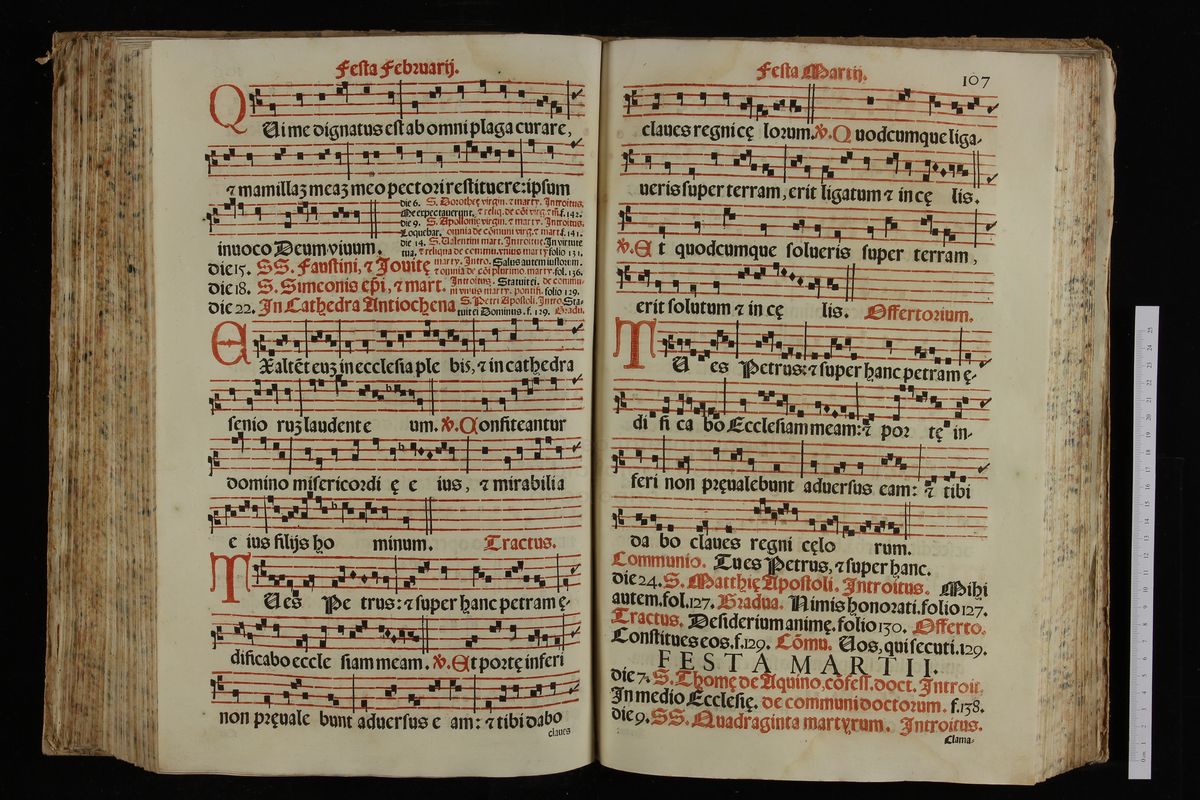 Festa Februarij.
QUi me dignatus est ab omni plaga curare,
⁊ mamillaꝫ meaꝫ meo pectori restituere: ipsum
inuoco Deum viuum.
die 6. S. Dorotheę virgin. ⁊ martỹ. Introitus.
Me expectauerunt, ⁊ reliq. de cõi virg. ⁊ m̃. f. 142.
die 9. S. Apollonię virgin. ⁊ martỹ. Introitus.
Loquebar. omnia de cõmuni virg. ⁊ mart. f. 141.
die 14. S. Valentini mart. Introitus. In virtute
tua, ⁊ reliqua de commu. vnius martỹ folio 131.
die 15. SS. Faustini, ⁊ Jouitę martỹ. Intro. Salus autem iustorum.
⁊ omnia de cõi plurimo. martỹ. fol. 136.
die 18. S. Simeonis ep̃i, ⁊ mart. Introitus. Statuit ei. de commu-
ni vnius martỹ. pontifi. folio 129.
die 22. In Cathedra Antiochena S. Petri Apostoli. Intro. Sta-
tuit ei Dominus. f. 129. Gradu.
EXaltẽt euꝫ in ecclesia ple bis, ⁊ in cathedra
senio ruꝫ laudent e um. ℣. Confiteantur
domino misericordi ę e ius, ⁊ mirabilia
e ius filijs ho minum. Tractus.
TU es Pe trus: ⁊ super hanc petram ę-
dificabo eccle siam meam. ℣. Et portę inferi
non pręuale bunt aduersus e am: ⁊ tibi dabo
claues
Festa Martij. 107
claues regni cę lorum. ℣. Quodcumque liga-
ueris super terram, erit ligatum ⁊ in cę lis.
℣. Et quodcumque solueris super terram,
erit solutum ⁊ in cę lis. Offertorium.
TU es Petrus: ⁊ super hanc petram ę-
di fi ca bo Ecclesiam meam: ⁊ por tę in-
feri non pręualebunt aduersus eam: ⁊ tibi
da bo claues regni cęlo rum.
Communio. Tu es Petrus, ⁊ super hanc.
die 24. S. Matthię Apostoli. Introitus. Mihi
autem. fol. 127. Gradua. Nimis honorati. folio 127.
Tractus. Desiderium animę. folio 130. Offerto.
Constitues eos. f. 129. Cõmu. Uos, qui secuti. 129.
FESTA MARTII.
die 7. S. Thomę de Aquino, cõfess. doct. Introit.
In medio Ecclesię. de communi doctorum. f. 138.
die 9. SS. Quadraginta martyrum. Introitus.
Clama-